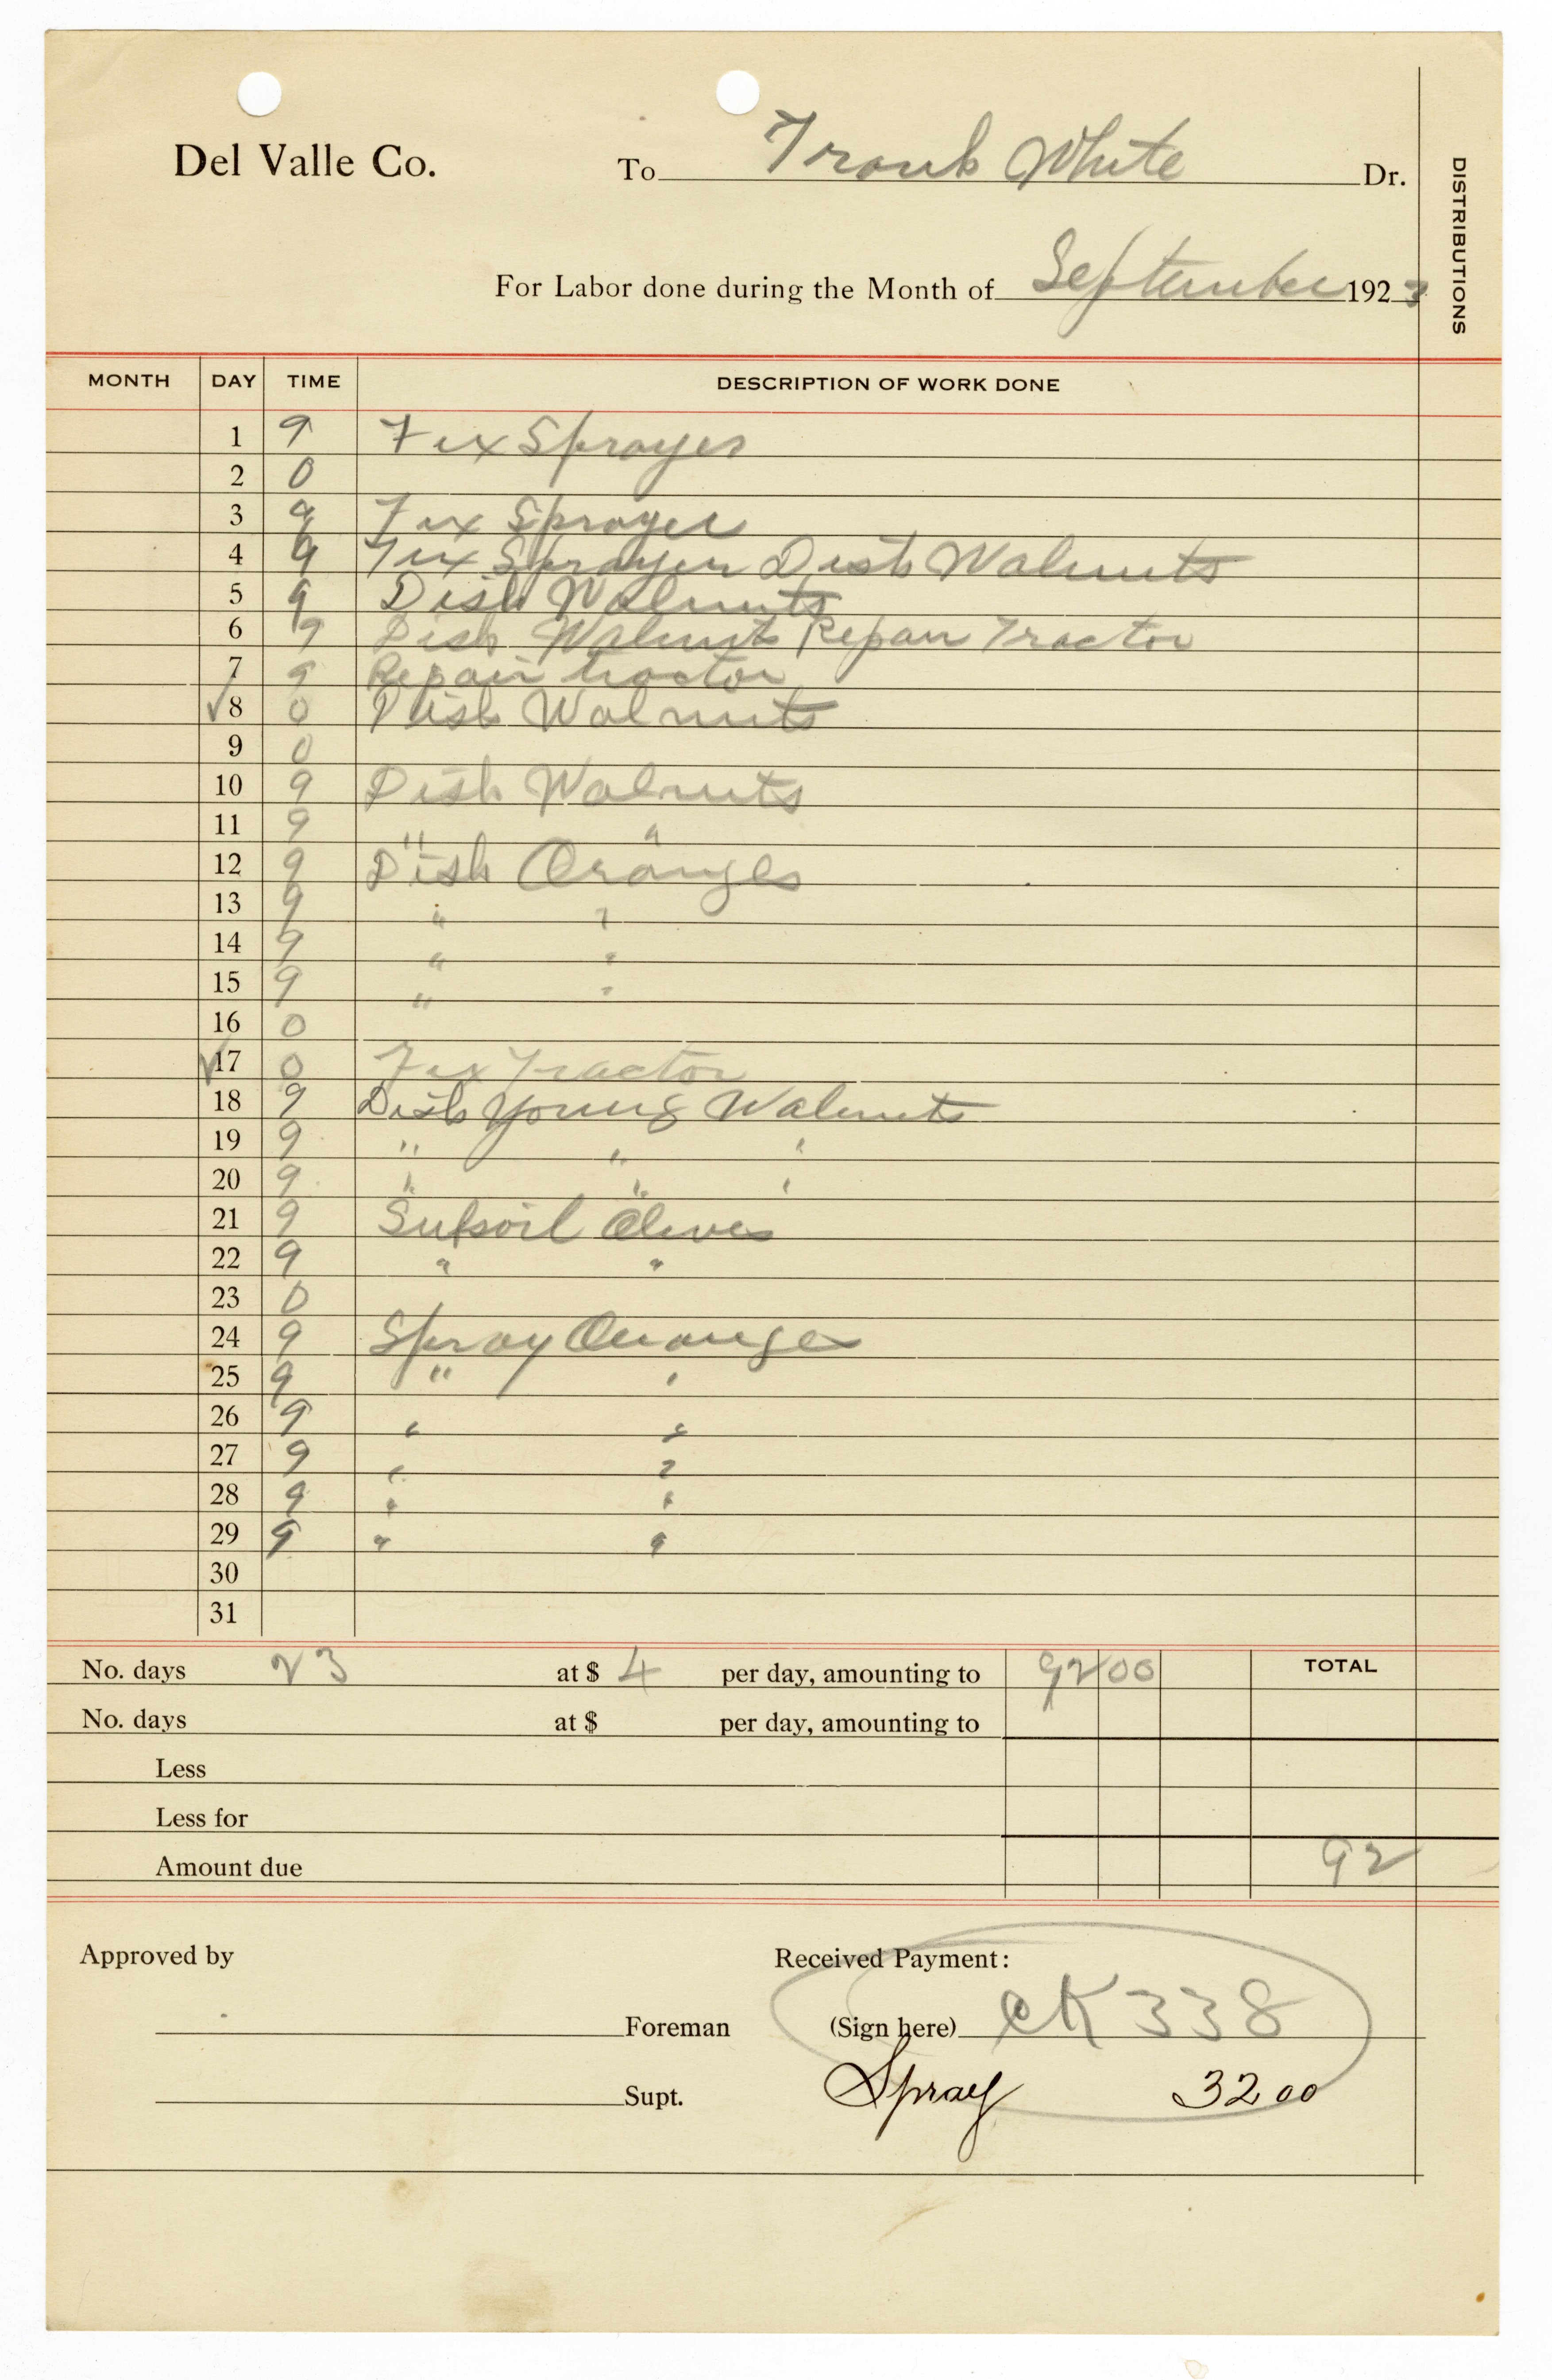 Del Valle Co. To Frank White Dr.
DISTRIBUTIONS
For Labor done during the Month of September 1923
MONTH DAY TIME DESCRIPTION OF WORK DONE
1 9 Fix Sprayer
2 0
3 9 Fix Sprayer
4 9 Fix Sprayer Disk Walnuts
5 9 Disk Walnuts
6 9 Disk Walnuts Repair Tractor
7 9 Repair tractor
✓8 0 Disk Walnuts
9 0
10 9 Disk Walnuts
11 9 " "
12 9 Disk Oranges
13 9 " "
14 9 " "
15 9 " "
16 0
✓17 0 Fix Tractor
18 9 Disk Young Walnuts
19 9 " " "
20 9 " " "
21 9 Subsoil Olives
22 9 " "
23 0
24 9 Spray Oranges
25 9 " "
26 9 " "
27 9 " "
28 9 " "
29 9 " "
30
31
No. days 23 at $ 4 per day, amounting to 92 00 TOTAL
No. days at $ per day, amounting to
Less
Less for
Amount due 92
Approved by Received Payment:
Foreman (Sign here) CK 338
Supt. Spray 32 00